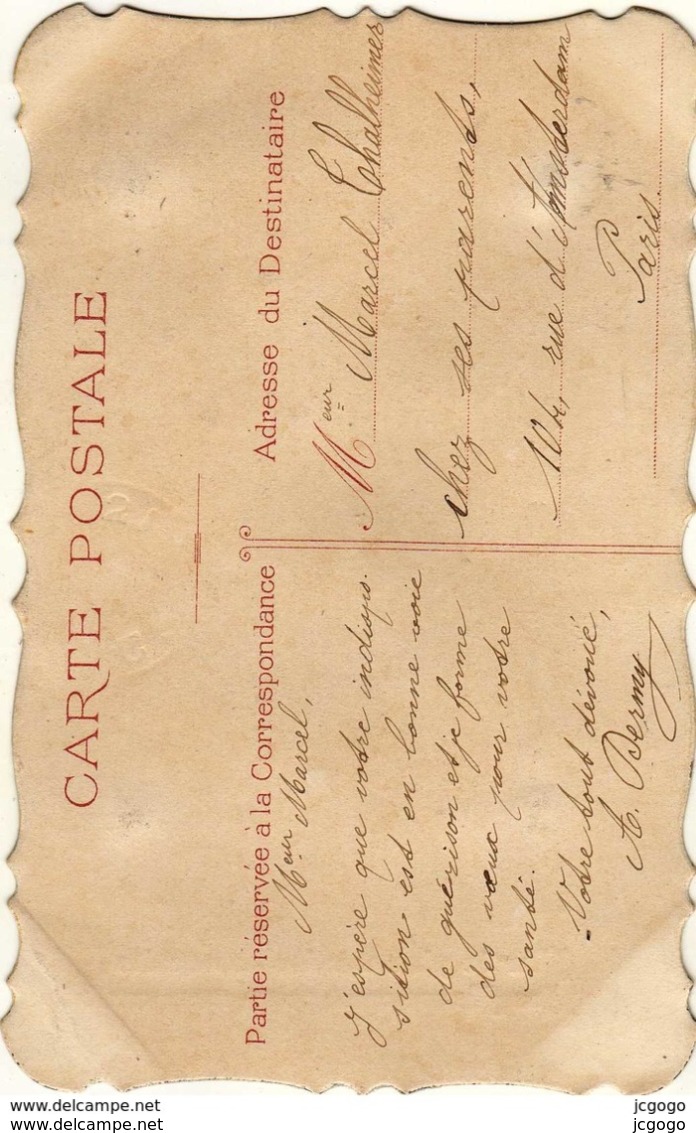 CARTE POSTALE
Partie réservée à la Correspondance
Meur Marcel,
J'espère que votre indispo-
sition est en bonne voie
de guérison et je forme
des vœux pour votre
santé.
Votre tout dévoué,
A. Dermy
Adresse du Destinataire
Meur Marcel Thalheimer
chez ses parents,
104, rue d'Amsterdam
Paris.
delcampe.net jcgogo
www.delcampe.net jcgogo